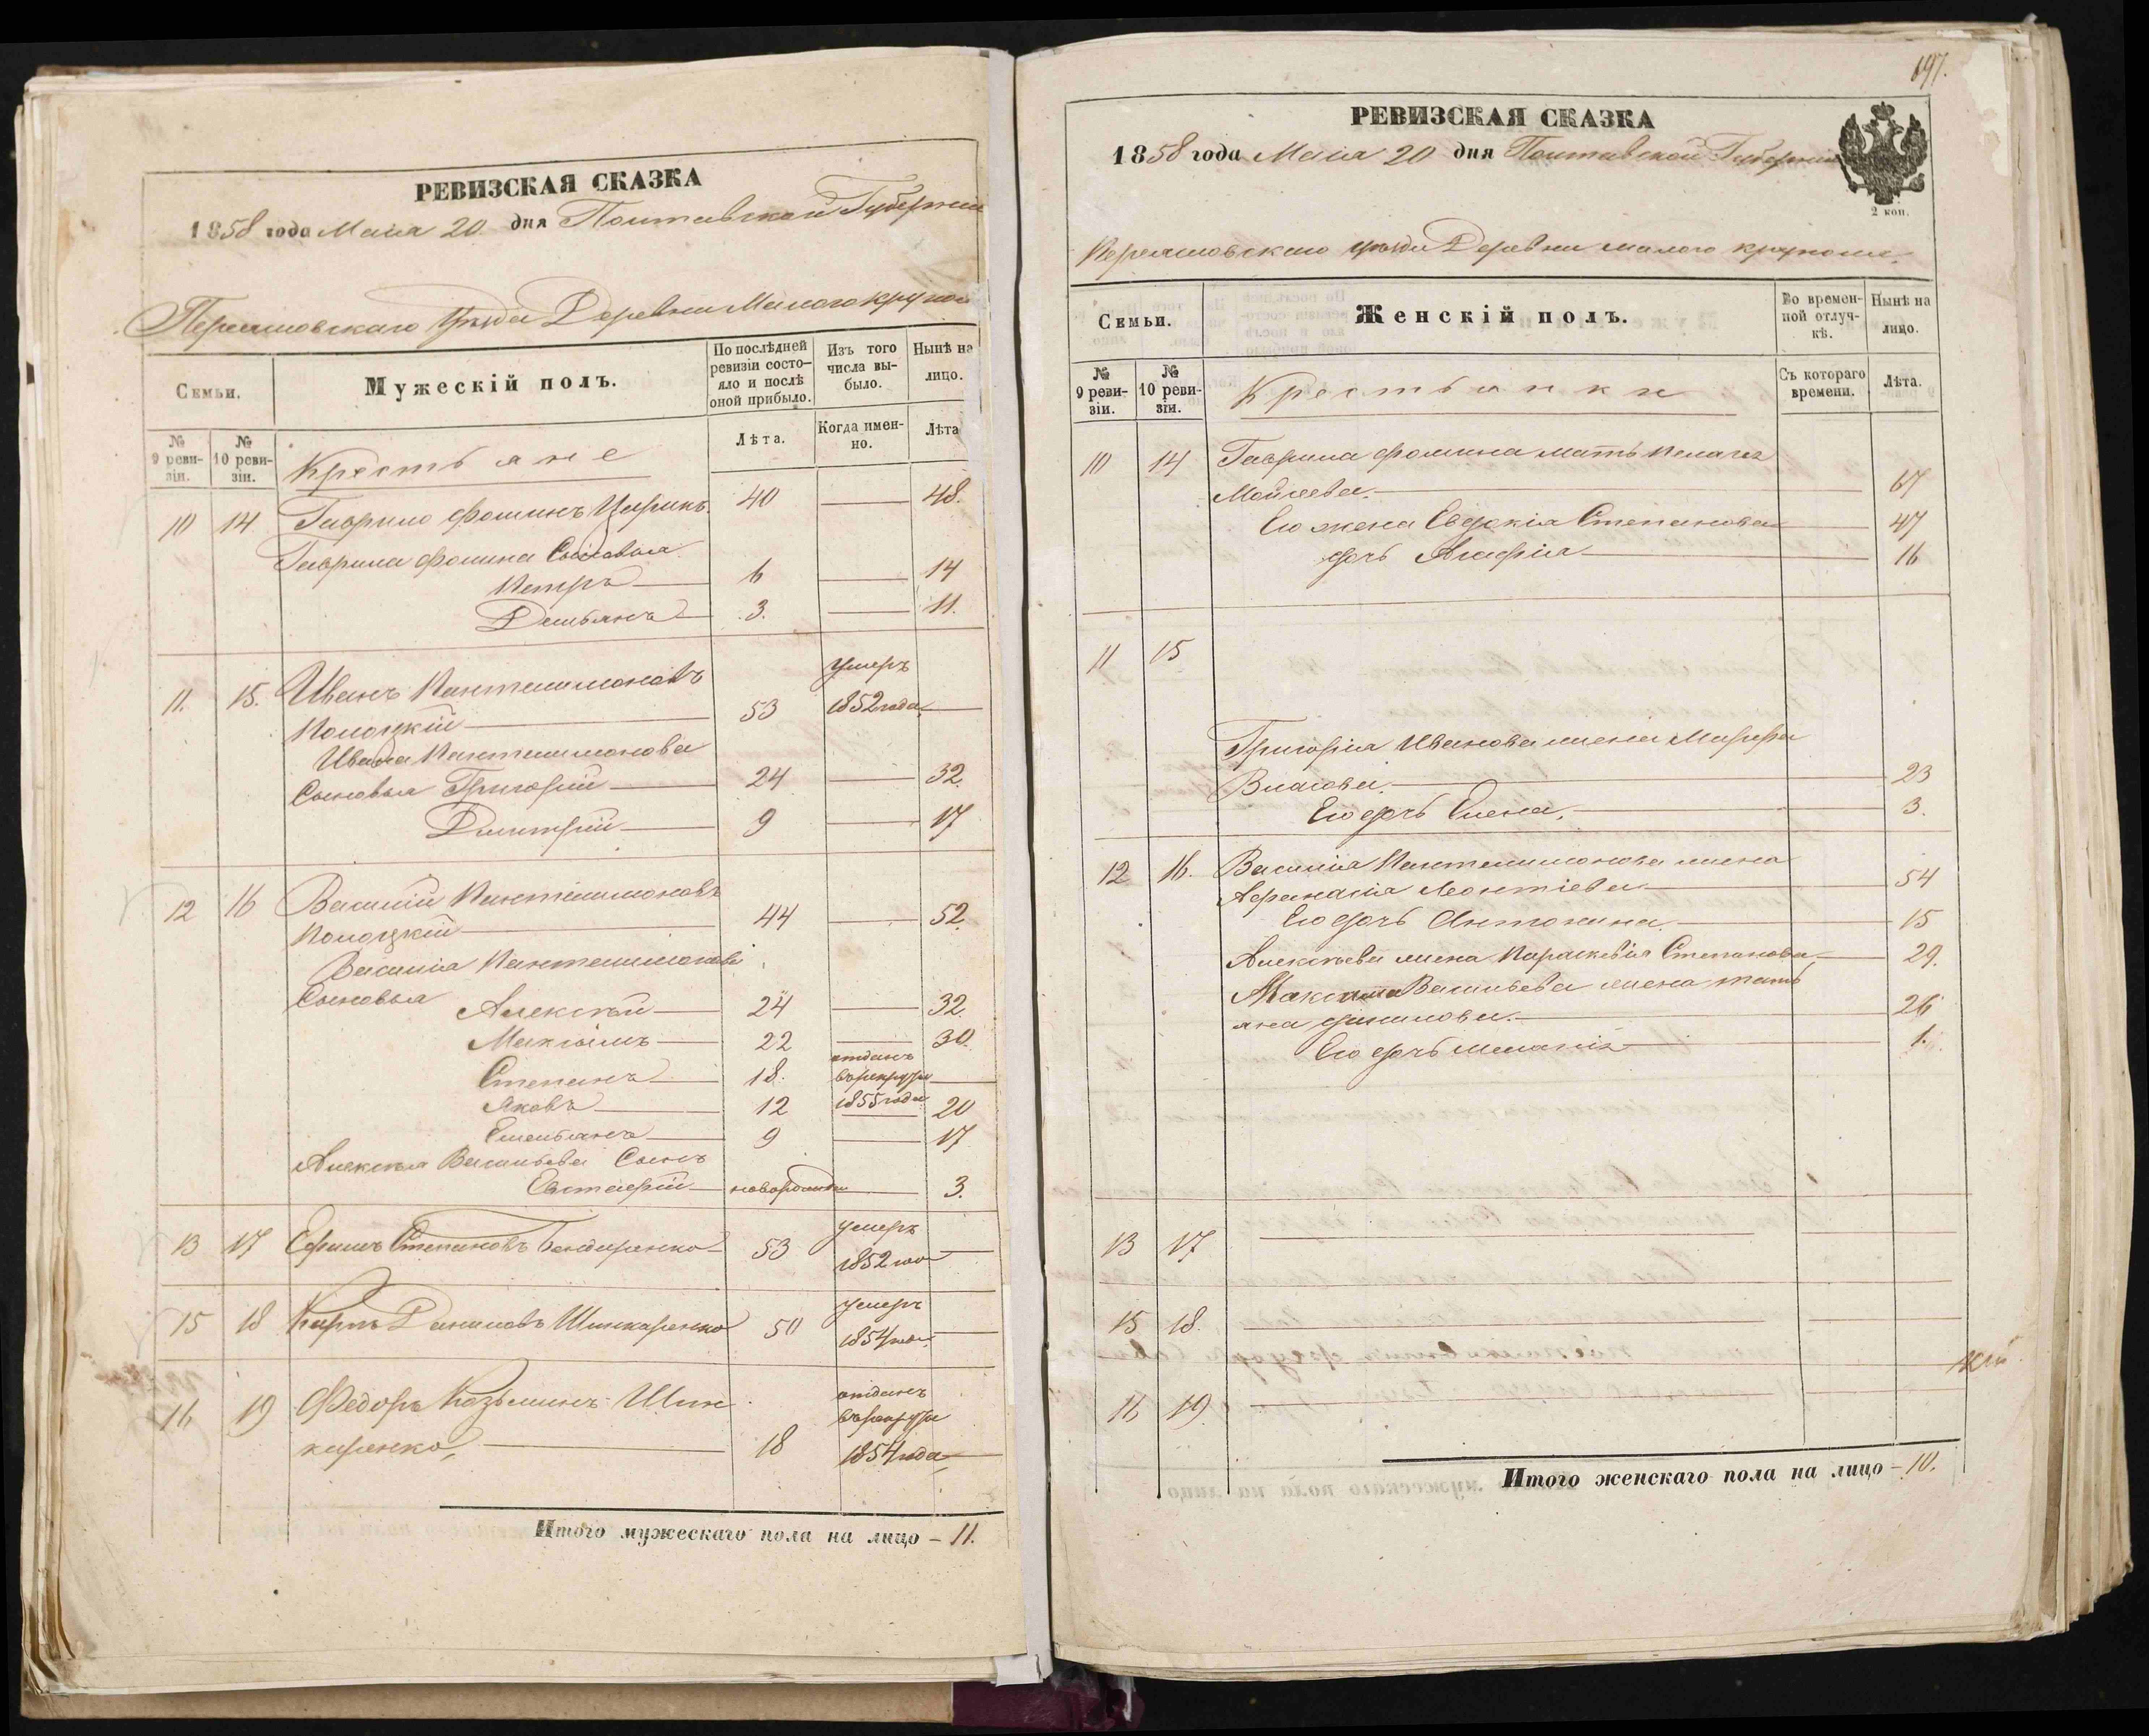 РЕВИЗСКАЯ СКАЗКА
1858 года Мая 20 дня Полтавской Губернии
Переяловскаго Уезда Деревни Малого крупол
Семьи.
Мужескій полъ.
По послѣдней ревизіи состо-
яло и послѣ
оной прибыло.
Изъ того
числа вы-
было.
Нынѣ на
лицо.
№
9 реви-
зіи.
№
10 реви-
зіи.
Крестьяне
Лѣта.
Когда имен-
но.
Лѣта
10 14 Гаврило Фоминъ Цирикъ 40 48.
Гаврила Фомина Сыновья
Петръ 6 14
Демьянъ 3. 11.
11. 15. Иванъ Пантелимоновъ умеръ
Полоцкій 53 1852 года
Ивана Пантелимонова
Сыновья Григорій 24 32.
Дмитрій 9 17
12 16 Василій Пантелимоновъ
Полоцкій 44 52.
Василія Пантелимонова
Сыновья Алексѣй 24 32.
Максимъ 22 30.
Степанъ 18. отданъ въ рекруты 1855 года
Яковъ 12 20
Емельянъ 9 17
Алексѣя Васильева Сынъ
Евстафій новорожден 3.
13 17 Ефимъ Степановъ Бондаренко 53 умеръ
1852 го
15 18 Карпъ Даниловъ Шинкаренко 50 умеръ
1854 го
16 19 Федоръ Козьминъ Шин отданъ
въ рекруты
каренко, 18 1854 года
Итого мужескаго пола на лицо – 11.
697.
РЕВИЗСКАЯ СКАЗКА
1858 года Мая 20 дня Полтавской Губернии
2 коп.
Переяловскаго уезда Деревни малого круполя.
Семьи.
Женскій полъ.
Во времен-
ной отлуч-
кѣ.
Нынѣ на
лицо.
№
9 реви-
зіи.
№
10 реви-
зіи.
Крестьянки
Съ котораго
времени.
Лѣта.
10 14 Гаврила Фомина мать Пелагея
Мойсеева. 67
Его жена Евдокія Степанова 47
дочь Агафія 16
11 15
Григорія Иванова жена Марфа
Власова. 23
Его дочь Елена. 3.
12 16. Василія Пантелимонова жена
Афанасія Леонтіева 54
Его дочь Антонина. 15
Алексѣева жена Параскевія Степанова 29.
Максима Васильева жена татъ
яна данилова. 26
Его дочь меланія 1.
13 17
15 18.
16 19.
Итого женскаго пола на лицо – 10.